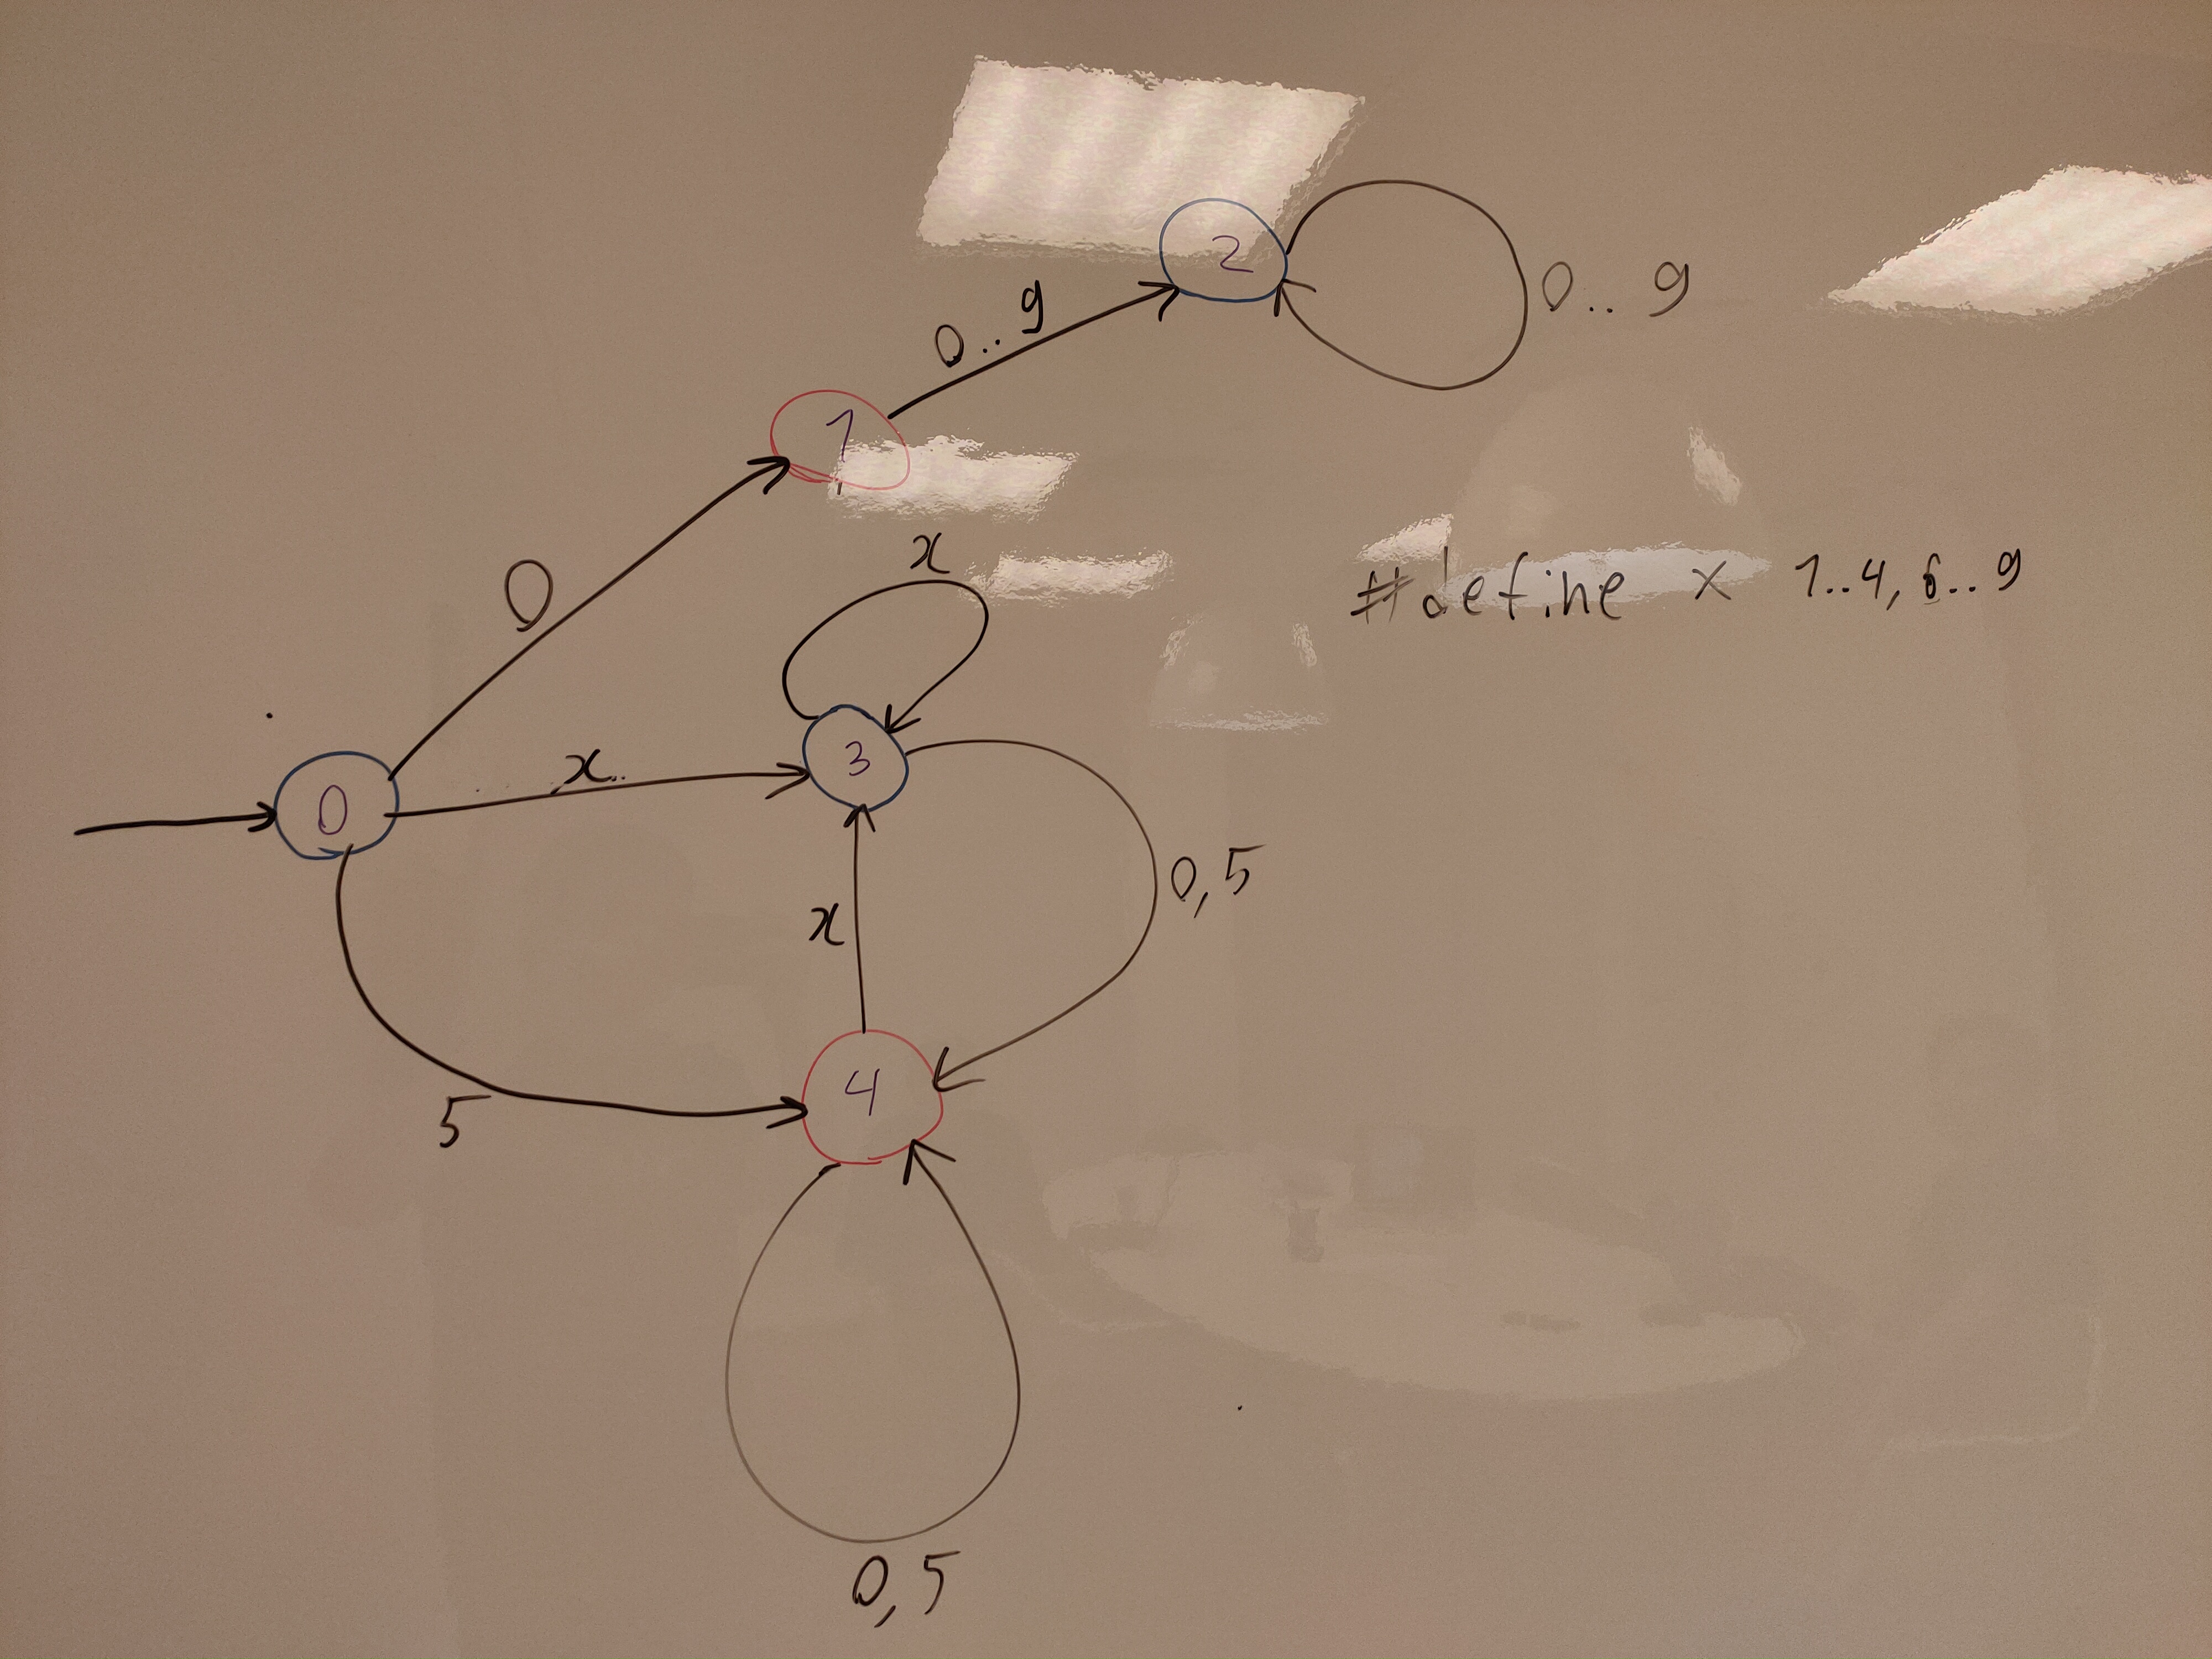 2
0..9
0..9
1
0
x
#define x 1..4, 6..9
3
x
0
0,5
x
4
5
0,5